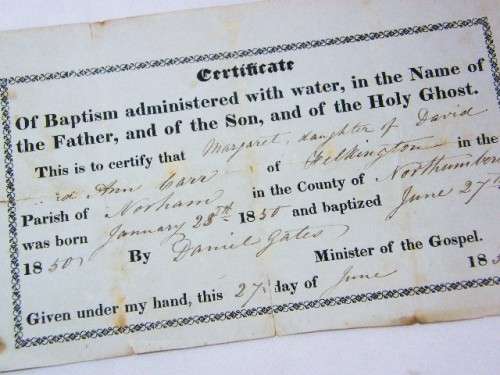 Certificate
Of Baptism administered with water, in the Name of
the Father, and of the Son, and of the Holy Ghost.
This is to certify that Margaret, daughter of David
Ann Carr of Felkington in the
Parish of Norham in the County of Northumber
was born January 28th 1850 and baptized June 27th
1850, By Daniel Gates
Minister of the Gospel.
Given under my hand, this 27 day of June 185